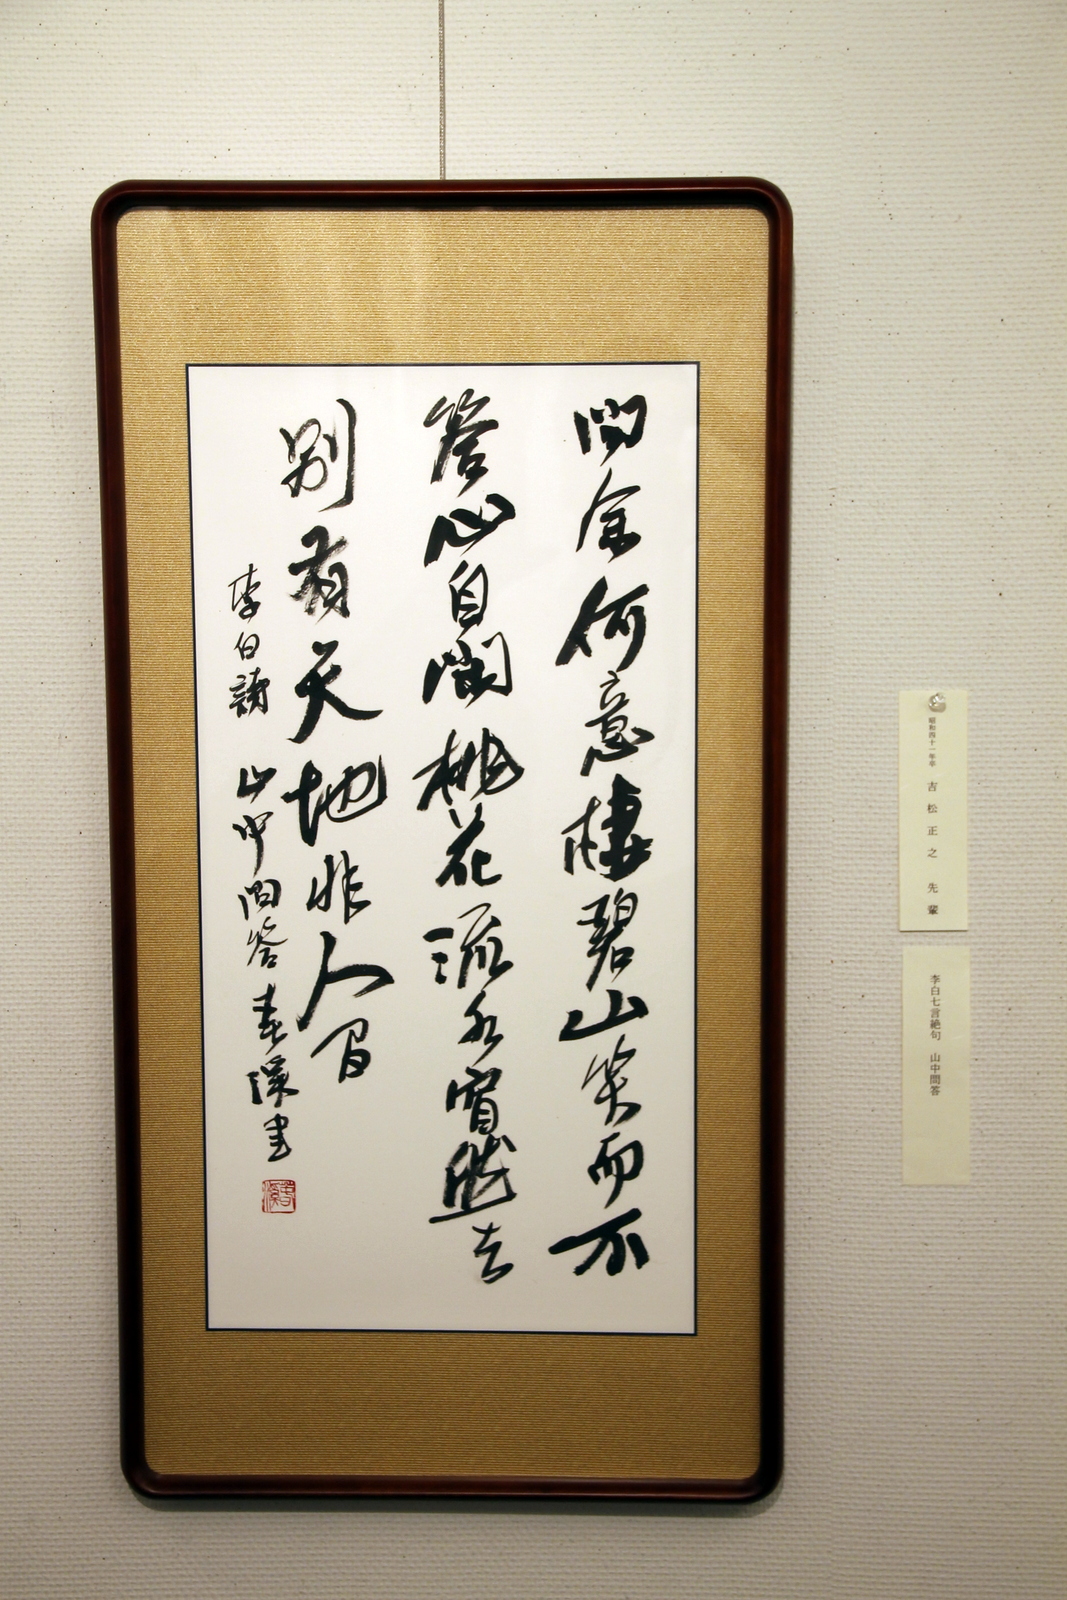 問余何意棲碧山笑而不
答心自閑桃花流水窅然去
別有天地非人間
李白詩 山中問答 春溪書
春溪
昭和四十一年卒 吉松正之 先輩
李白七言絶句 山中問答